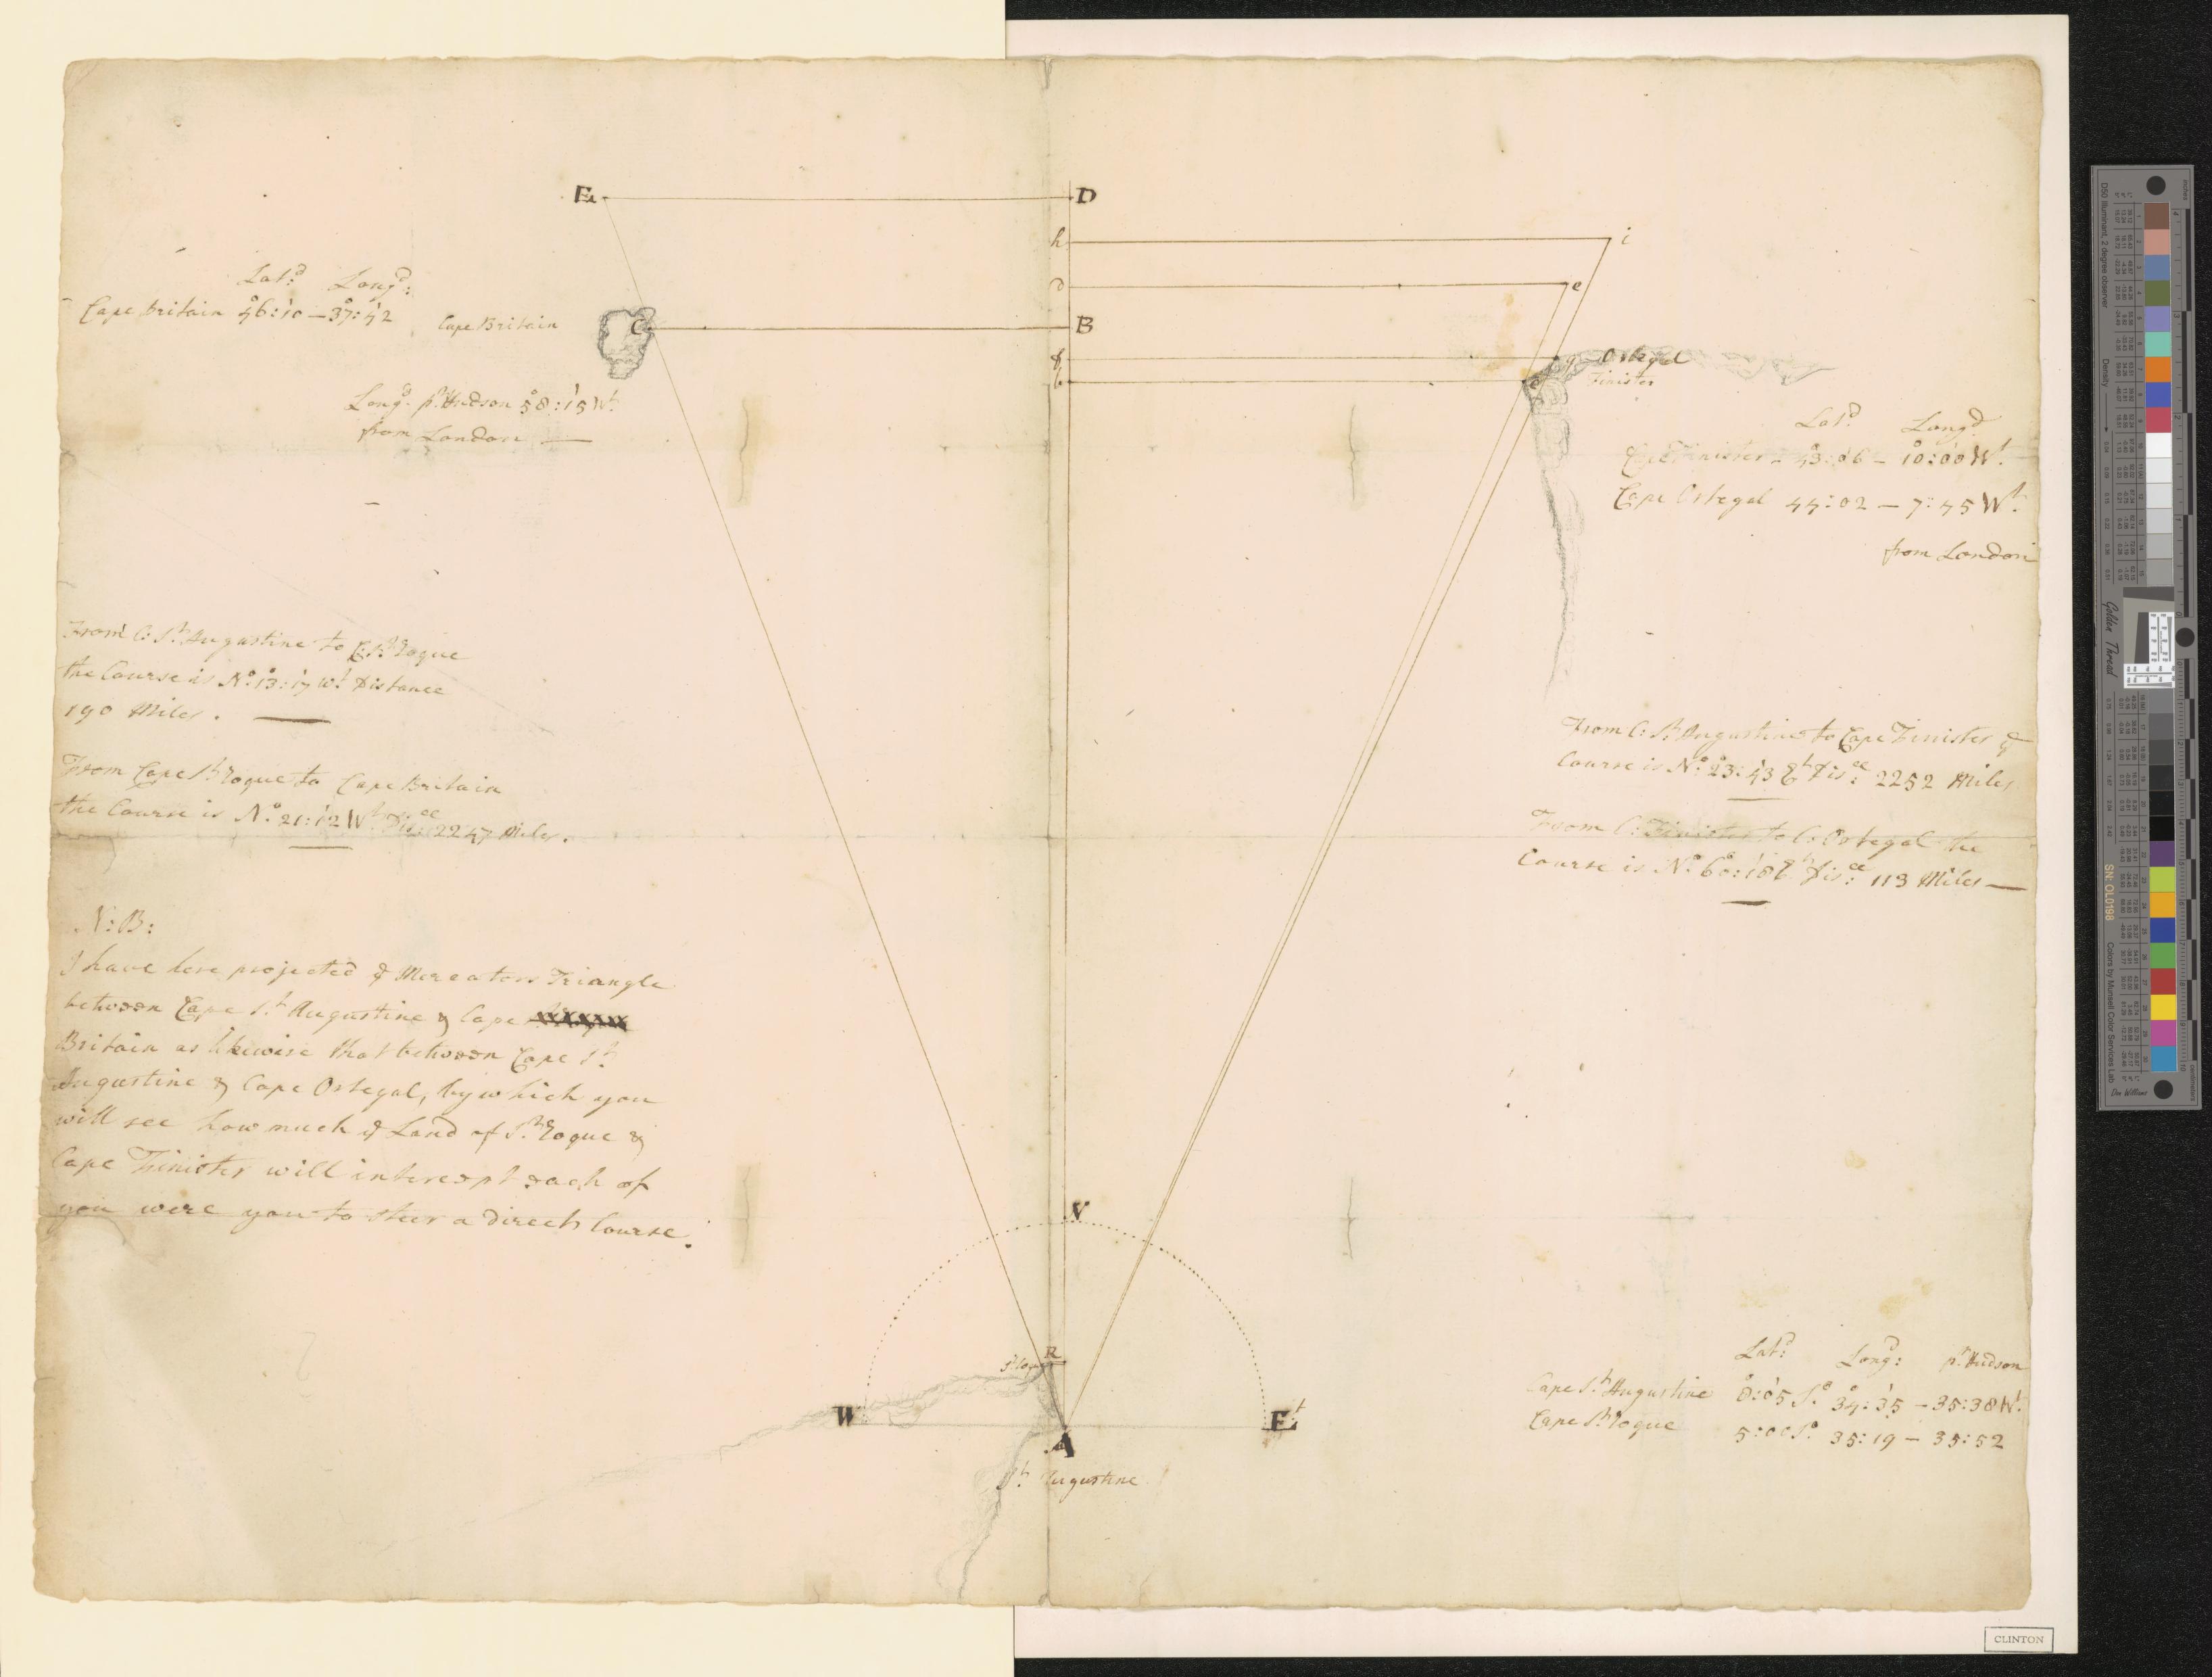 E
D
h
i
d
e
Lat:d Long:d
Cape Britain 46°:10' — 37°:42'
Cape Britain
C
B
f
g
Ortegal
b
c
Finister
Long:d pr. Hudson 58°:15' Wt.
from London —
Lat:d Long:d
Cape Finister - 43:06 - 10:00 Wt.
Cape Ortegal 44:02 — 7:45 Wt.
from London
From C: St. Augustine to C: St. Roque
the Course is No. 13°:17' Wt. Distance
190 Miles. —
From Cape St. Roque to Cape Britain
the Course is No. 21:12 Wt. Dis:ce 2247 Miles.
From C: St. Augustine to Cape Finister ye
Course is No. 23°:43' Et Dis:ce 2252 Miles
From C: Finister to C: Ortegal the
Course is No. 60°:18' Et Dis:ce 113 Miles —
N:B:
I have here projected ye Mercators Triangle
between Cape St. Augustine & Cape
Britain as likewise that between Cape St.
Augustine & Cape Ortegal, by which you
will see how much ye Land of St. Roque &
Cape Finister will intersept each of
you were you to steer a direct Course.
N
R
W
Et
A
St. Augustine
Lat:d Long:d pr. Hudson
Cape St. Augustine 8°:05' So. 34°:35' — 35:38 Wt.
Cape St. Roque 5:00 So. 35:19 — 35:52
CLINTON
D50 Illuminant, 2 degree observer
Density
Golden Thread
SN: OL0198
Colors by Munsell Color Services Lab
Don Williams
inches
centimeters